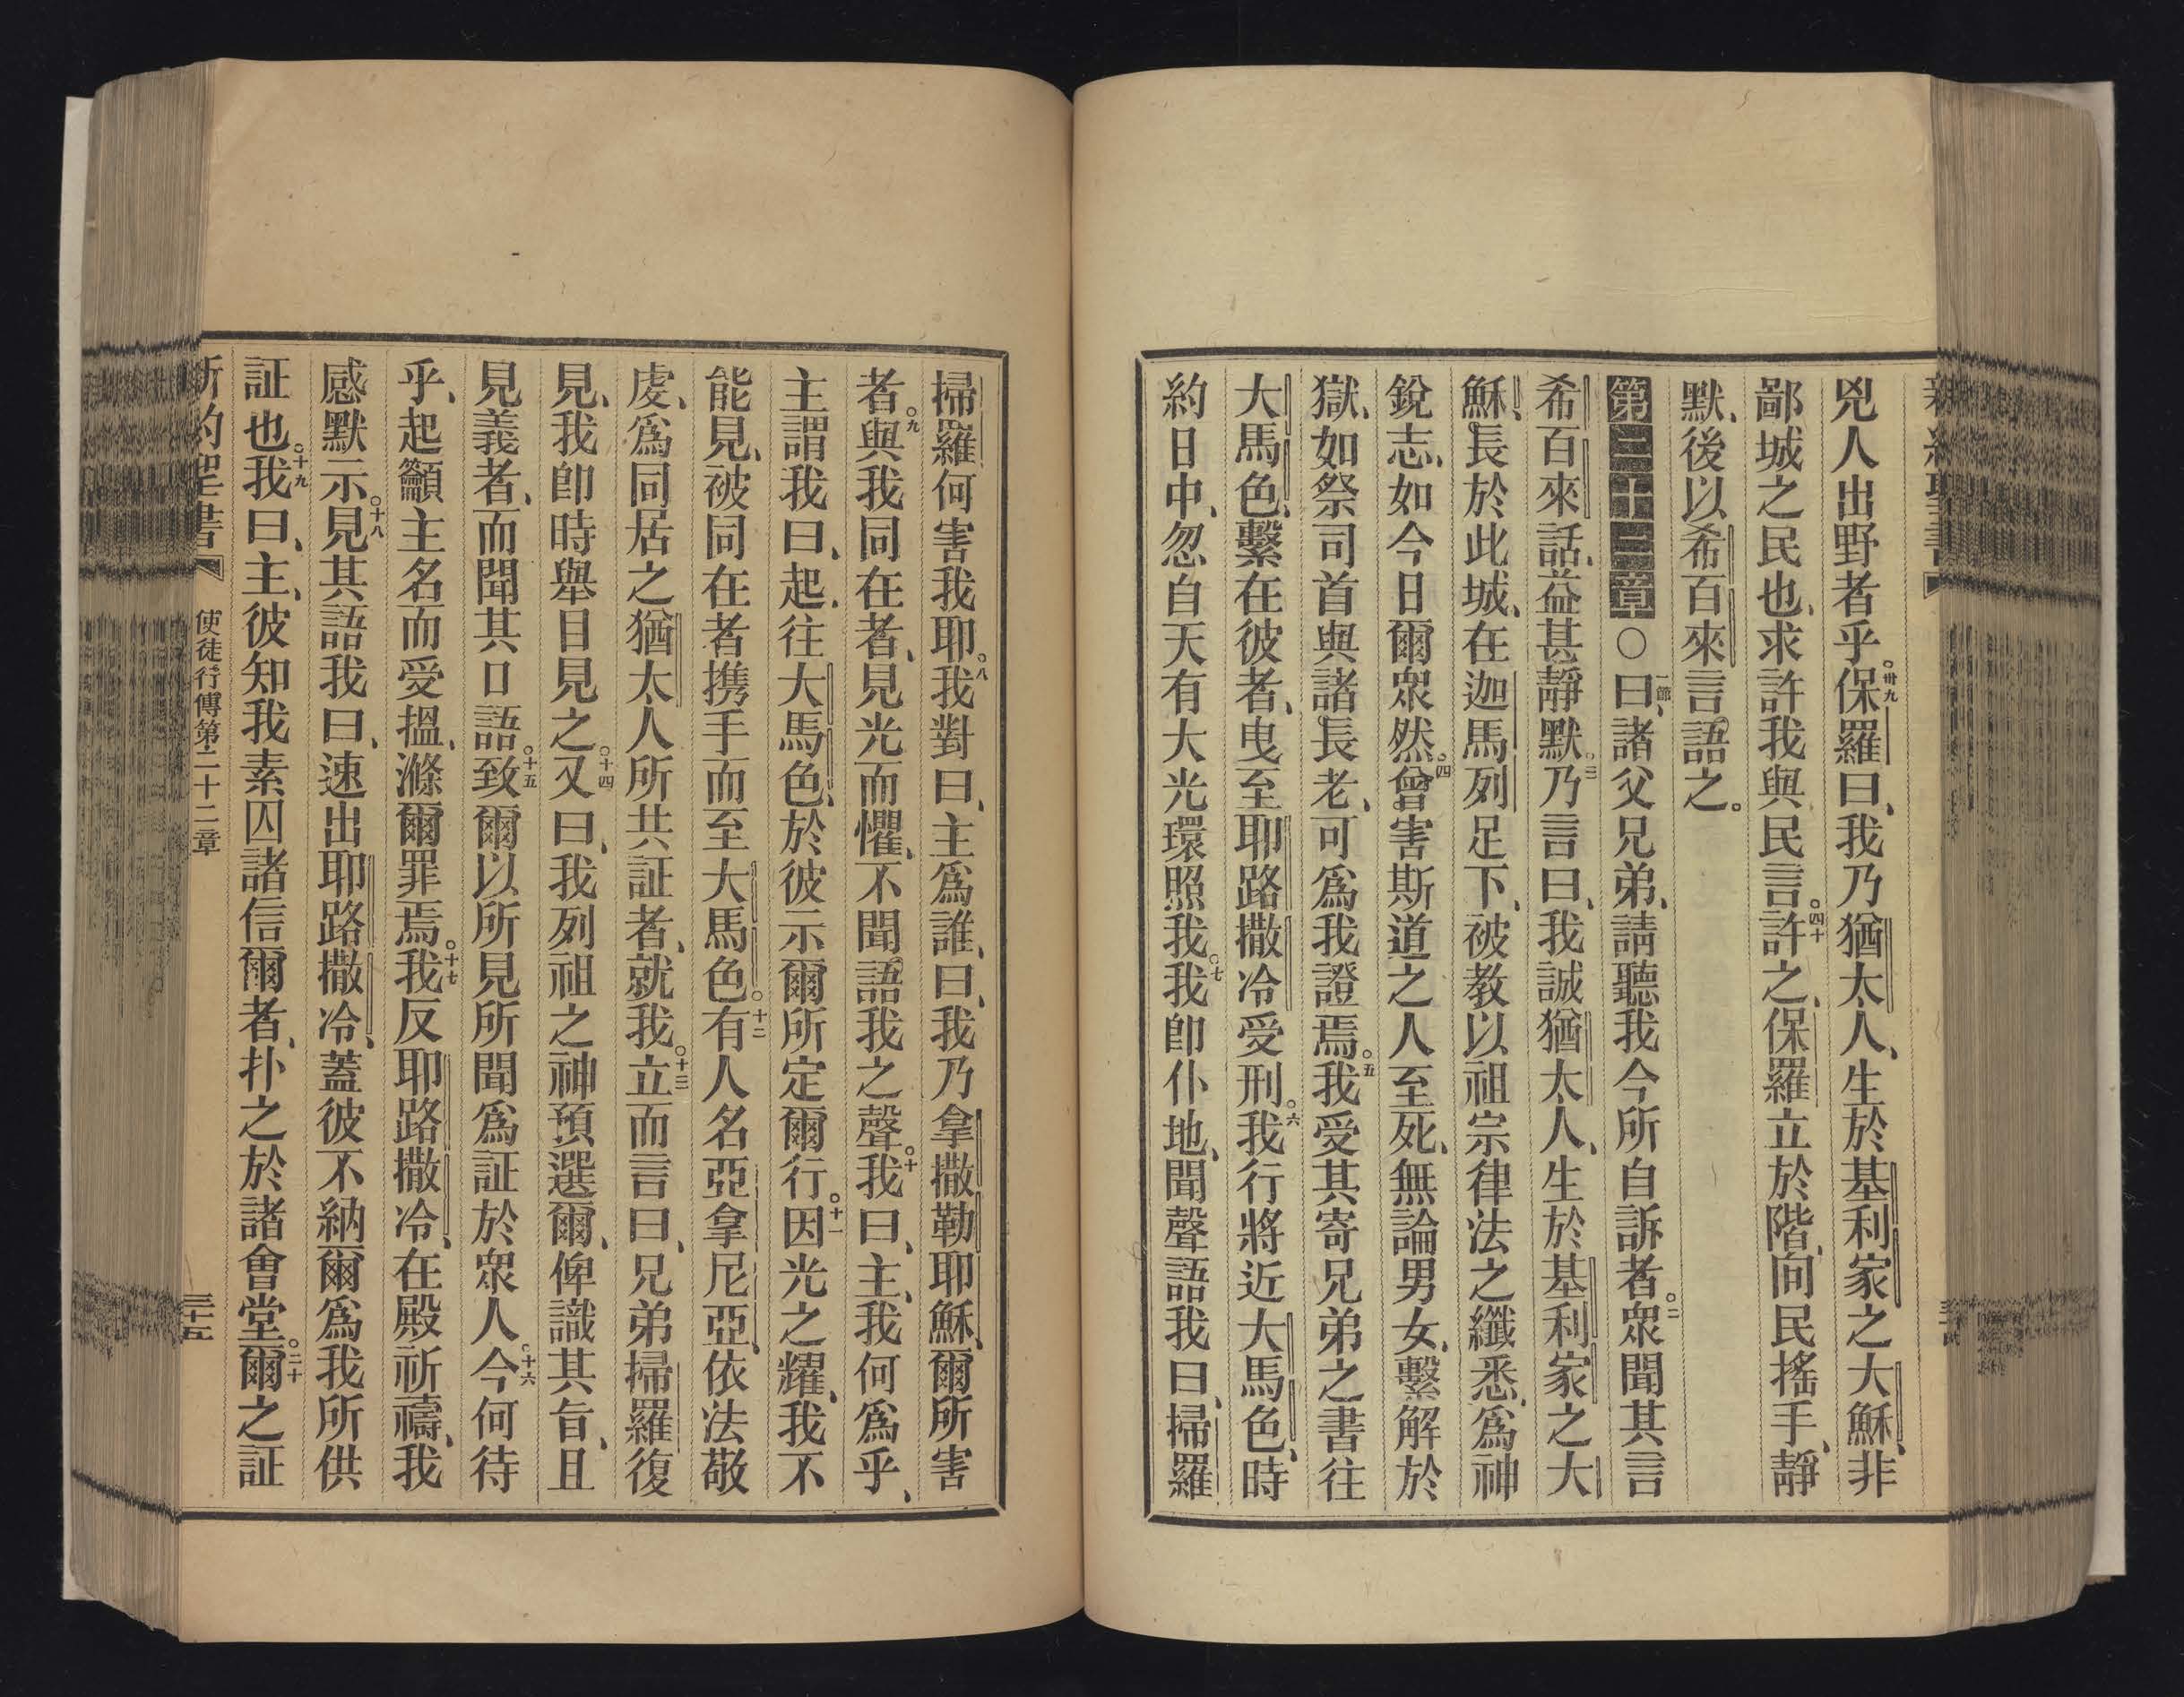 兇人出野者乎。卅九保羅曰、我乃猶太人、生於基利家之大穌、非
鄙城之民也、求許我與民言。四十許之、保羅立於階、向民搖手、靜
默、後以希百來言語之。
第二十二章〇一節曰、諸父兄弟、請聽我今所自訴者。二眾聞其言
希百來話、益甚靜默。三乃言曰、我誠猶太人、生於基利家之大
穌、長於此城、在迦馬列足下、被教以祖宗律法之纖悉、為神
銳志、如今日爾眾然。四曾害斯道之人至死、無論男女、繫解於
獄、如祭司首與諸長老、可為我證焉。五我受其寄兄弟之書往
大馬色、繫在彼者、曳至耶路撒冷受刑。六我行將近大馬色、時
約日中、忽自天有大光環照我。七我卽仆地、聞聲語我曰、掃羅
掃羅何害我耶。八我對曰、主為誰、曰、我乃拿撒勒耶穌、爾所害
者。九與我同在者、見光而懼、不聞語我之聲。十我曰、主、我何為乎、
主謂我曰、起、往大馬色、於彼示爾所定爾行。十一因光之耀、我不
能見、被同在者携手而至大馬色。十二有人名亞拿尼亞、依法敬
虔、為同居之猶太人所共証者、就我。十三立而言曰、兄弟掃羅復
見、我卽時舉目見之。十四又曰、我列祖之神預選爾、俾識其旨、且
見義者、而聞其口語。十五致爾以所見所聞為証於眾人。十六今何待
乎、起籲主名而受搵、滌爾罪焉。十七我反耶路撒冷、在殿祈禱、我
感默示。十八見其語我曰、速出耶路撒冷、蓋彼不納爾為我所供
証也。十九我曰、主、彼知我素囚諸信爾者、扑之於諸會堂。二十爾之証
新約聖書 使徒行傳第二十二章 三十五